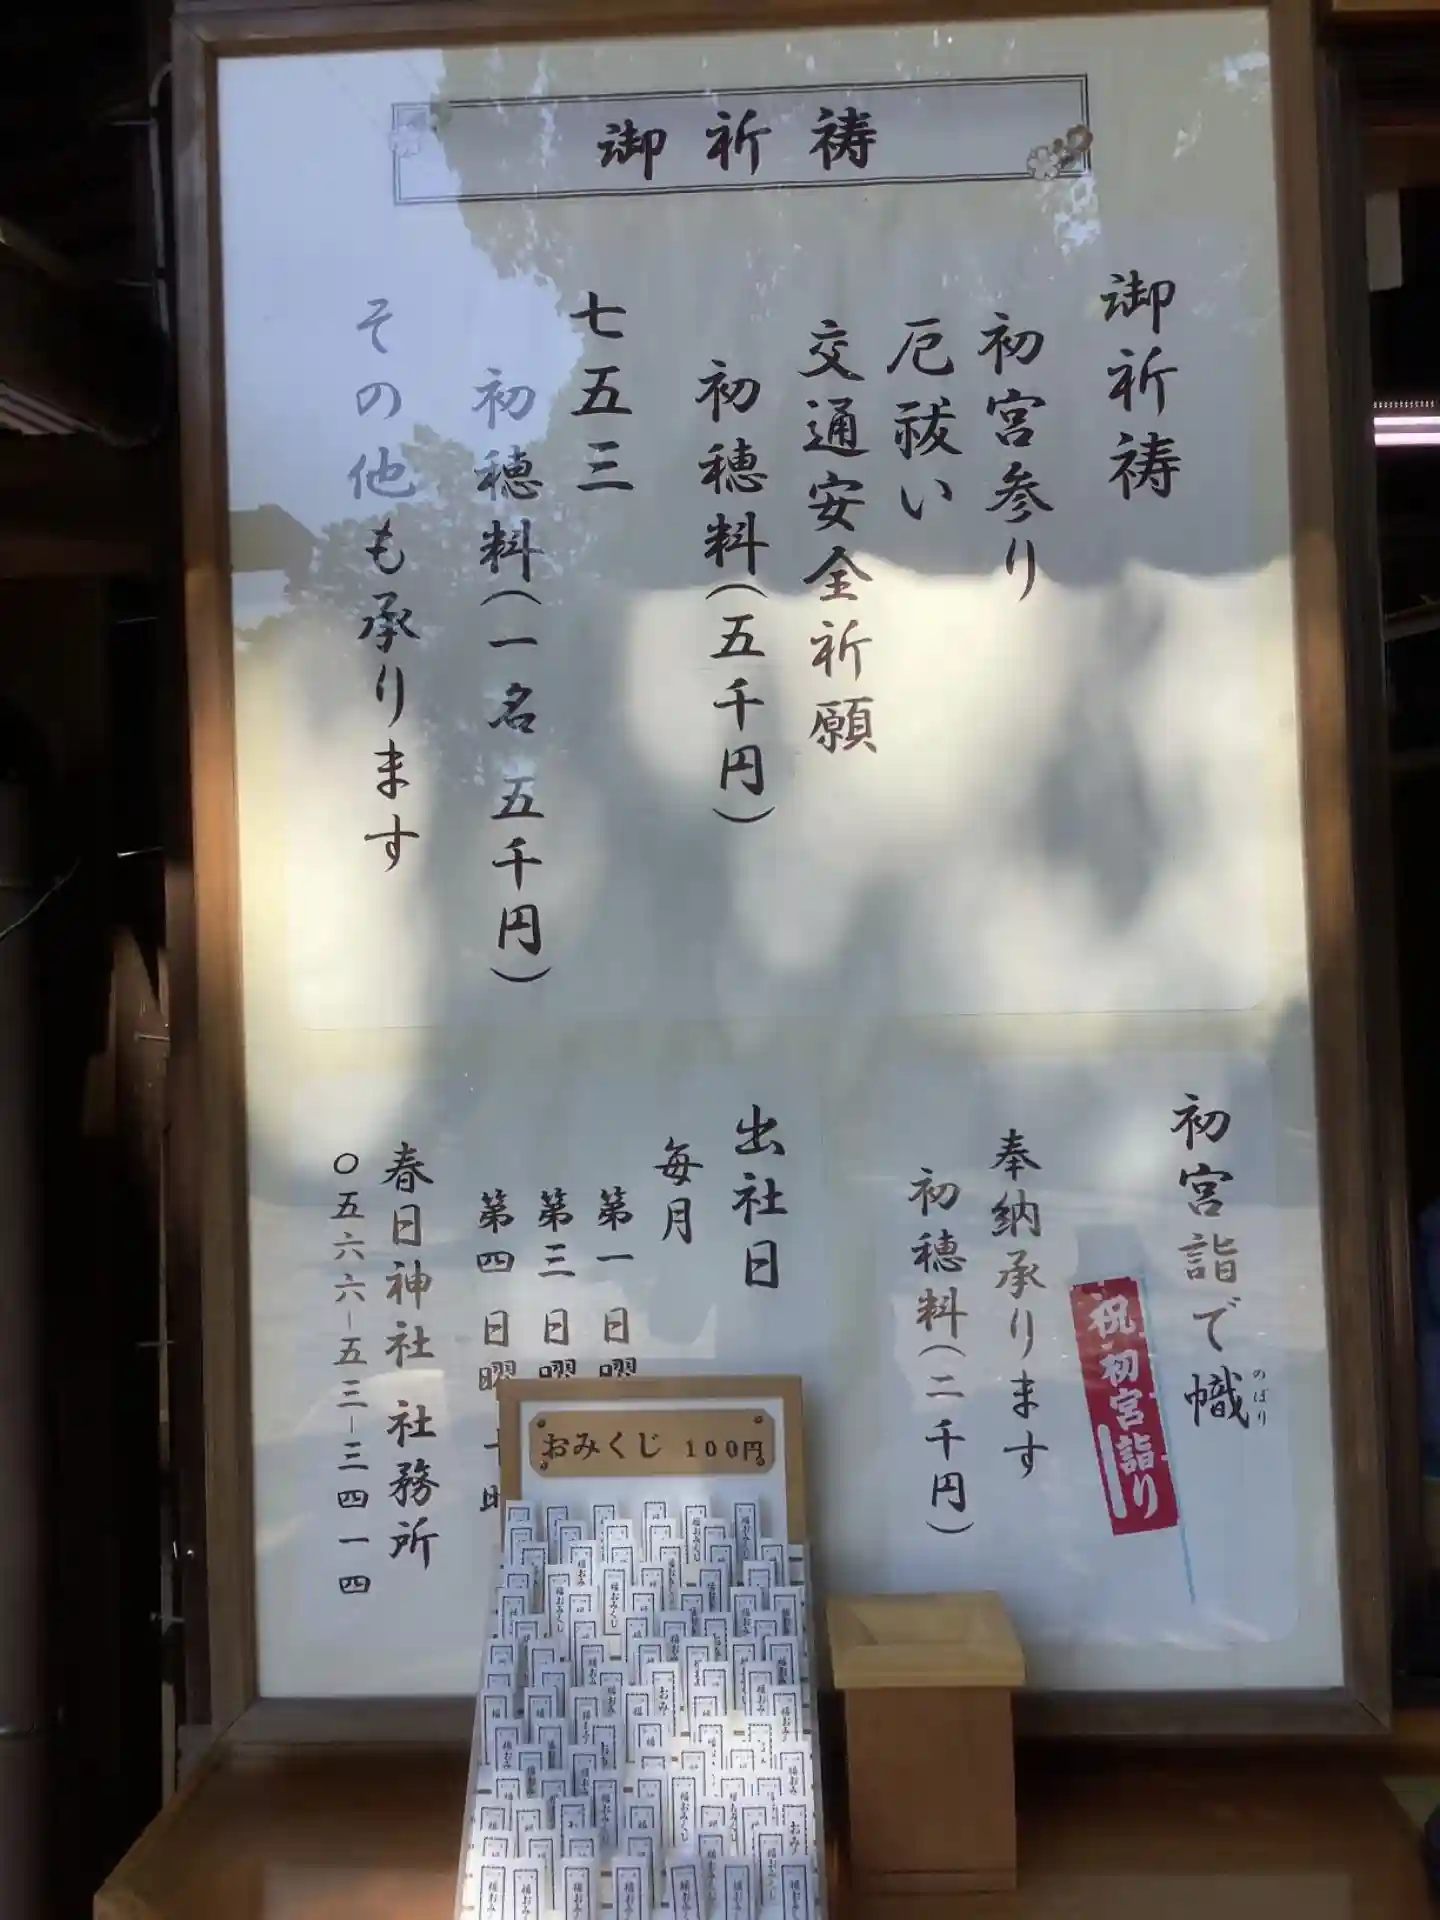 御祈祷
御祈祷
初宮参り
厄祓い
交通安全祈願
初穂料(五千円)
七五三
初穂料(一名 五千円)
その他も承ります
初宮詣で幟
のぼり
祝初宮詣り
奉納承ります
初穂料(二千円)
出社日
毎月
第一 日曜
第三 日曜
第四 日曜
春日神社 社務所
〇五六六-五三-三四一四
おみくじ 100円